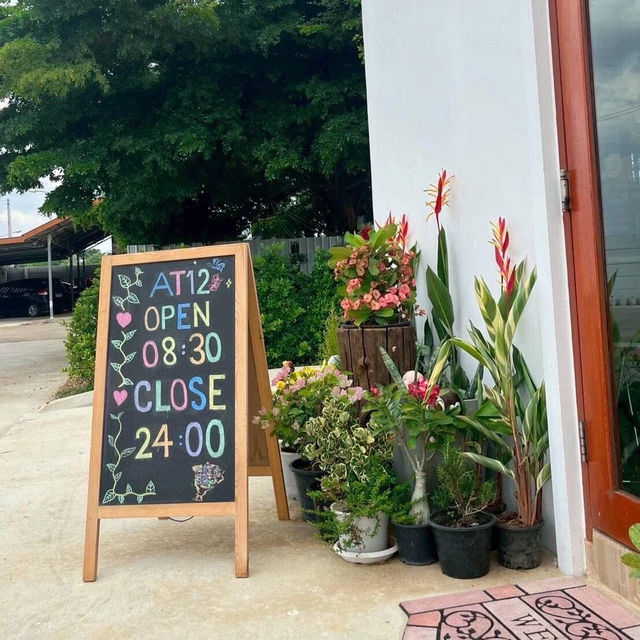 AT12
OPEN
08:30
CLOSE
24:00